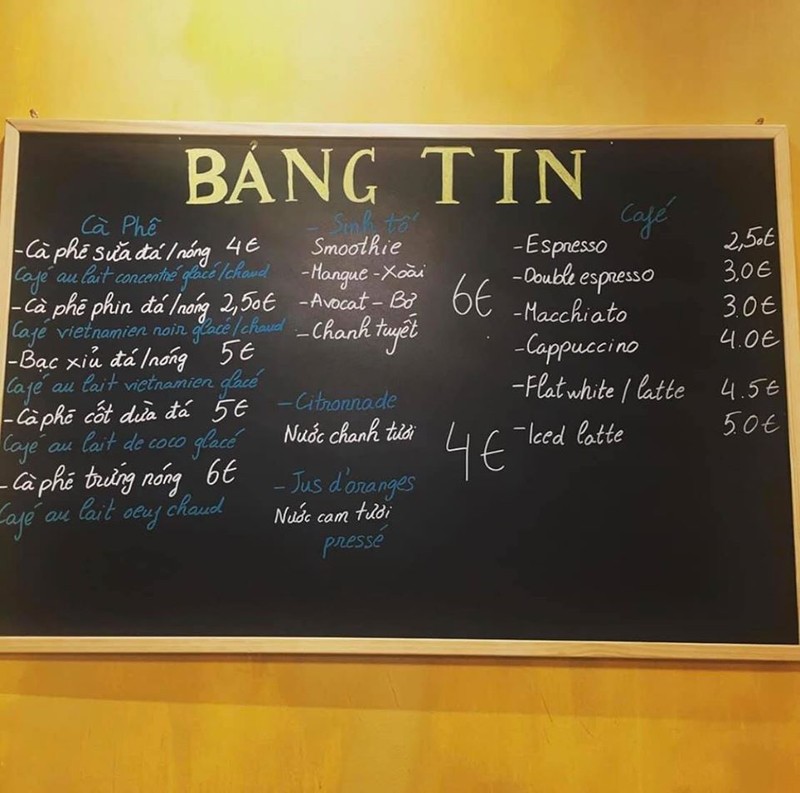 BẢNG TIN
Cà Phê
-Cà phê sữa đá/nóng 4€
Café au lait concentré glacé/chaud
-Cà phê phin đá/nóng 2,50€
Café vietnamien noir glacé/chaud
-Bạc xiủ đá/nóng 5€
Café au lait vietnamien glacé
-Cà phê cốt dừa đá 5€
Café au lait de coco glacé
-Cà phê trứng nóng 6€
Café au lait oeuf chaud
- Sinh tố
Smoothie
-Mangue-Xoài
-Avocat-Bơ
-Chanh tuyết
6€
-Citronnade
Nước chanh tươi
4€
-Jus d'oranges
Nước cam tươi
pressé
Café
-Espresso 2,50€
-Double espresso 3,0€
-Macchiato 3.0€
-Cappuccino 4.0€
-Flat white / latte 4.5€
-Iced latte 5.0€